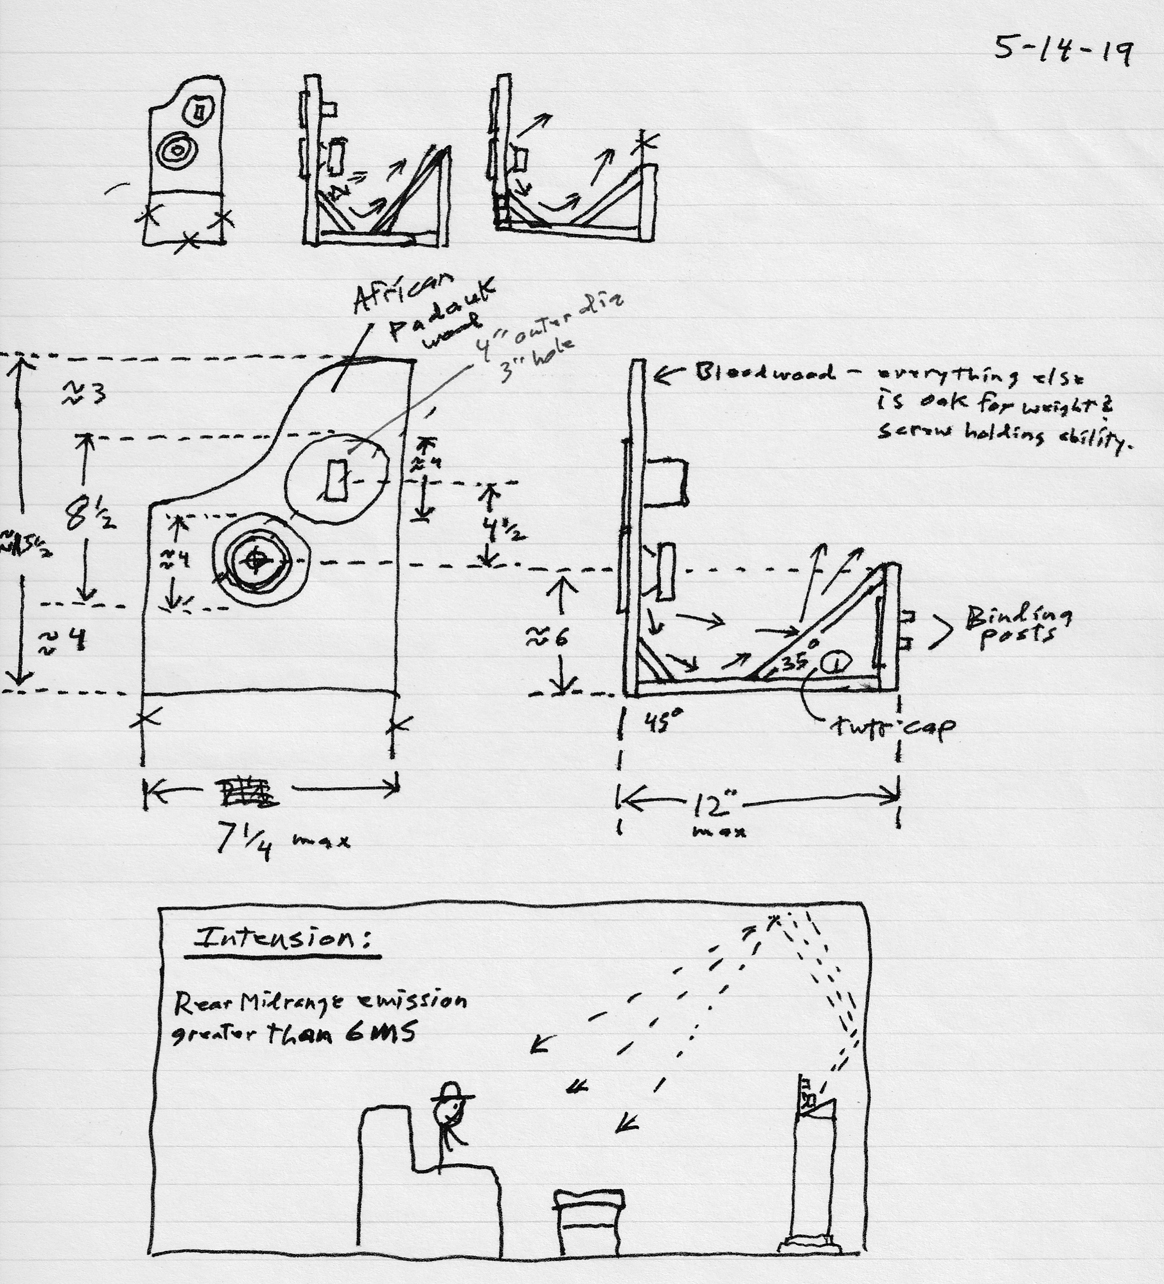 5-14-19
African
Padauk
wood
4" outer dia
3" hole
≈3
8 1/2
≈4
≈4
≈4
4 1/2
7 1/4 max
Bloodwood – everything else
is oak for weight &
screw holding ability.
≈6
35°
45°
Binding
posts
12"
max
Intension:
Rear Midrange emission
greater than 6MS